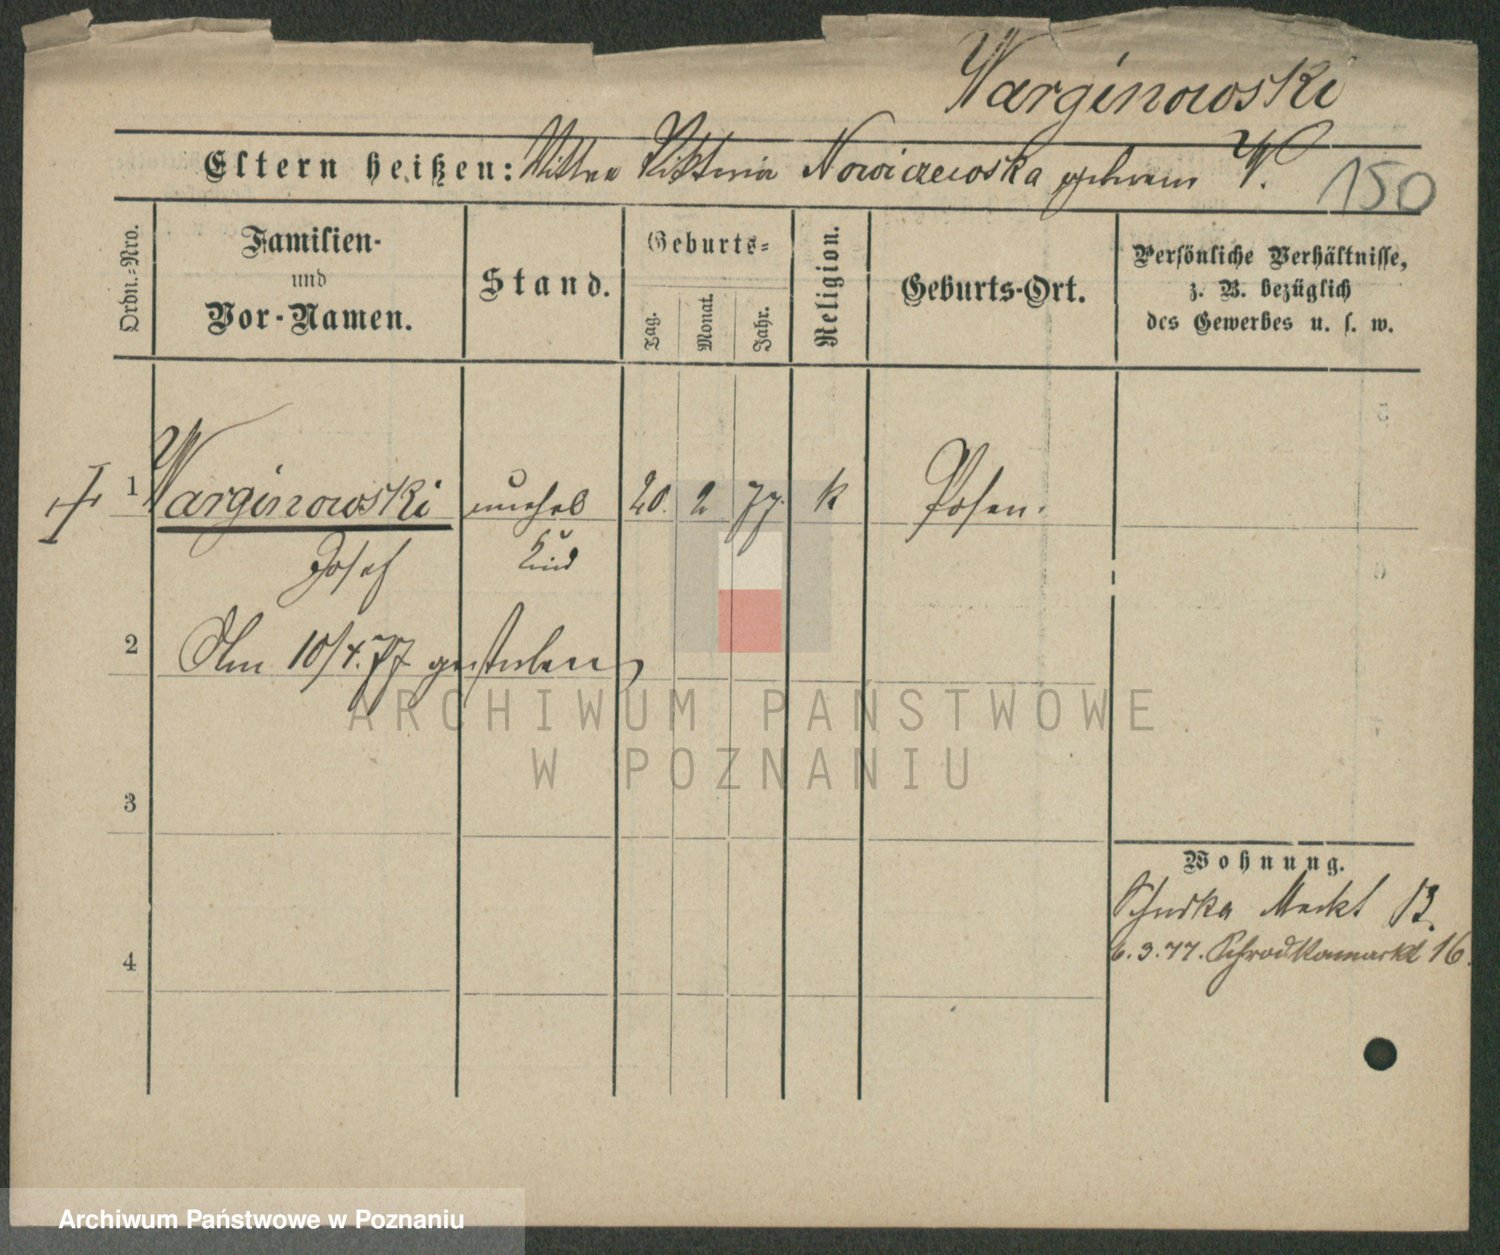 Warginowski
Eltern heißen: Wittwe Viktoria Nowiczewska geborene W. 150
Ordn.-Nro.
Familien-
und
Vor-Namen.
Stand.
Geburts-
Tag.
Monat.
Jahr.
Religion.
Geburts-Ort.
Persönliche Verhältnisse,
z. B. bezüglich
des Gewerbes u. s. w.
1 Warginowski unehel 20. 2 77. k Posen.
Josef Kind
2 Am 10/4.77 gestorben
3
4
Wohnung.
Schrodka Markt 13.
6.3.77. Schrodkamarkt 16.
ARCHIWUM PAŃSTWOWE
W POZNANIU
Archiwum Państwowe w Poznaniu